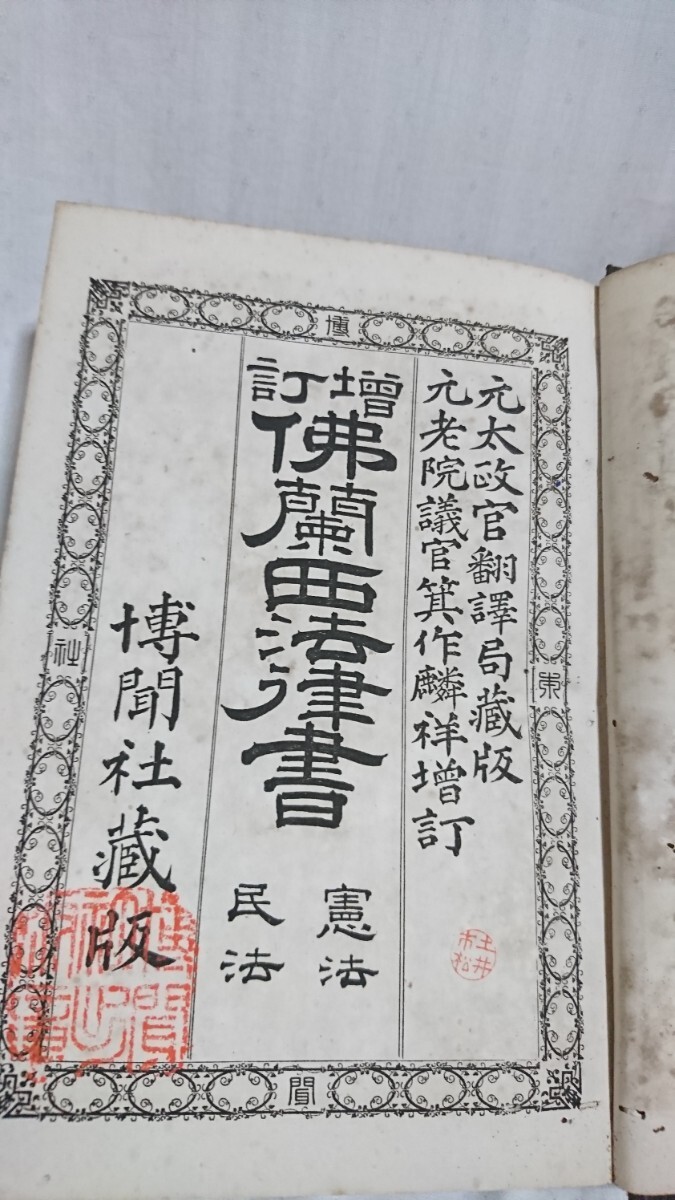 元太政官翻譯局藏版
元老院議官箕作麟祥增訂
增訂
佛蘭西法律書
憲法
民法
博聞社藏版
博
東
聞
社
土井
市松